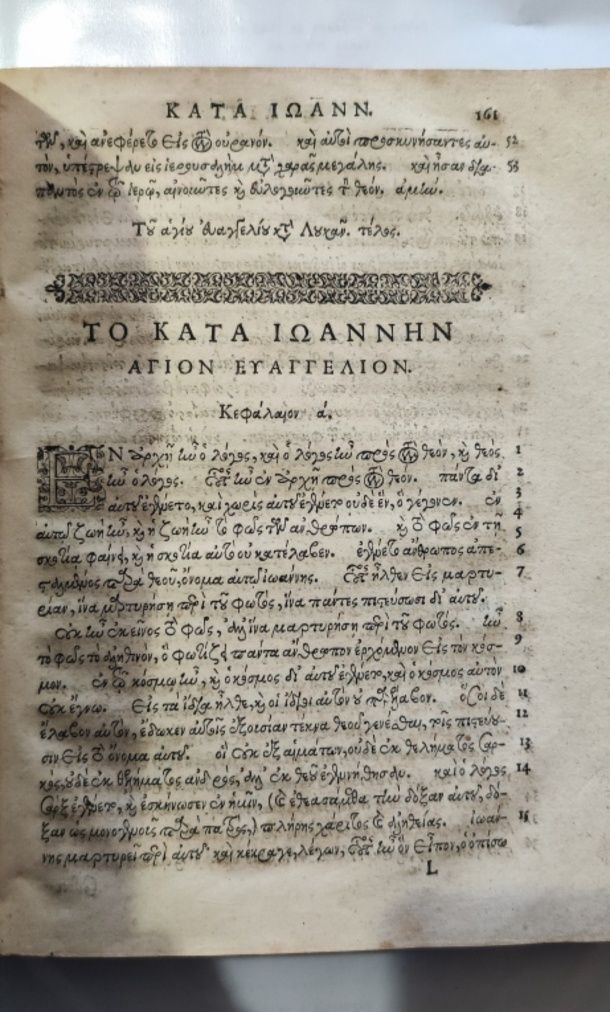 ΚΑΤΑ ΙΩΑΝΝ. 161
τῶν, καὶ ἀνεφέρετο εἰς τὸν οὐρανόν. καὶ αὐτοὶ προσκυνήσαντες αὐ- 52
τὸν, ὑπέστρεψαν εἰς ἱερουσαλὴμ μετὰ χαρᾶς μεγάλης. καὶ ἦσαν δια- 53
παντὸς ἐν τῷ ἱερῷ, αἰνοῦντες καὶ εὐλογοῦντες τὸν θεόν. ἀμήν.
Τοῦ ἁγίου εὐαγγελίου κατὰ Λουκᾶν τέλος.
ΤΟ ΚΑΤΑ ΙΩΑΝΝΗΝ
ΑΓΙΟΝ ΕΥΑΓΓΕΛΙΟΝ.
Κεφάλαιον ά.
ΕΝ ἀρχῇ ἦν ὁ λόγος, καὶ ὁ λόγος ἦν πρὸς τὸν θεόν, καὶ θεὸς 1
ἦν ὁ λόγος. οὗτος ἦν ἐν ἀρχῇ πρὸς τὸν θεόν. πάντα δι' 2 3
αὐτοῦ ἐγένετο, καὶ χωρὶς αὐτοῦ ἐγένετο οὐδὲ ἕν, ὃ γέγονεν. ἐν 4
αὐτῷ ζωὴ ἦν, καὶ ἡ ζωὴ ἦν τὸ φῶς τῶν ἀνθρώπων. καὶ τὸ φῶς ἐν τῇ 5
σκοτίᾳ φαίνει, καὶ ἡ σκοτία αὐτὸ οὐ κατέλαβεν. ἐγένετο ἄνθρωπος ἀπε- 6
σταλμένος παρὰ θεοῦ, ὄνομα αὐτῷ ἰωάννης. οὗτος ἦλθεν εἰς μαρτυ- 7
ρίαν, ἵνα μαρτυρήσῃ περὶ τοῦ φωτὸς, ἵνα πάντες πιστεύσωσι δι' αὐτοῦ.
οὐκ ἦν ἐκεῖνος τὸ φῶς, ἀλλ' ἵνα μαρτυρήσῃ περὶ τοῦ φωτός. ἦν 8
τὸ φῶς τὸ ἀληθινὸν, ὃ φωτίζει πάντα ἄνθρωπον ἐρχόμενον εἰς τὸν κόσ- 9
μον. ἐν τῷ κόσμῳ ἦν, καὶ ὁ κόσμος δι' αὐτοῦ ἐγένετο, καὶ ὁ κόσμος αὐτὸν 10
οὐκ ἔγνω. Εἰς τὰ ἴδια ἦλθε, καὶ οἱ ἴδιοι αὐτὸν οὐ παρέλαβον. ὅσοι δὲ 11
ἔλαβον αὐτὸν, ἔδωκεν αὐτοῖς ἐξουσίαν τέκνα θεοῦ γενέσθαι, τοῖς πιστεύου- 12
σιν εἰς τὸ ὄνομα αὐτοῦ. οἳ οὐκ ἐξ αἱμάτων, οὐδὲ ἐκ θελήματος σαρ- 13
κὸς, οὐδὲ ἐκ θελήματος ἀνδρὸς, ἀλλ' ἐκ θεοῦ ἐγεννήθησαν. καὶ ὁ λόγος 14
σὰρξ ἐγένετο, καὶ ἐσκήνωσεν ἐν ἡμῖν, (καὶ ἐθεασάμεθα τὴν δόξαν αὐτοῦ, δό-
ξαν ὡς μονογενοῦς παρὰ πατρὸς,) πλήρης χάριτος καὶ ἀληθείας. ἰωάν- 15
νης μαρτυρεῖ περὶ αὐτοῦ καὶ κέκραγε, λέγων, οὗτος ἦν ὃν εἶπον, ὁ ὀπίσω
L